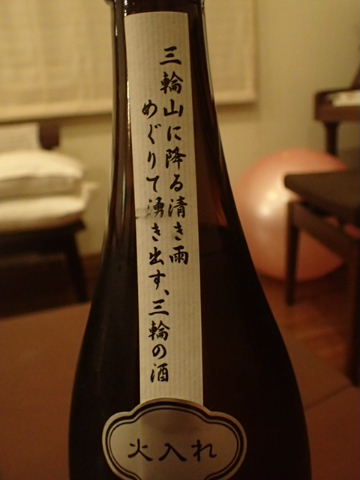 三輪山に降る清き雨
めぐりて湧き出す、三輪の酒
火入れ